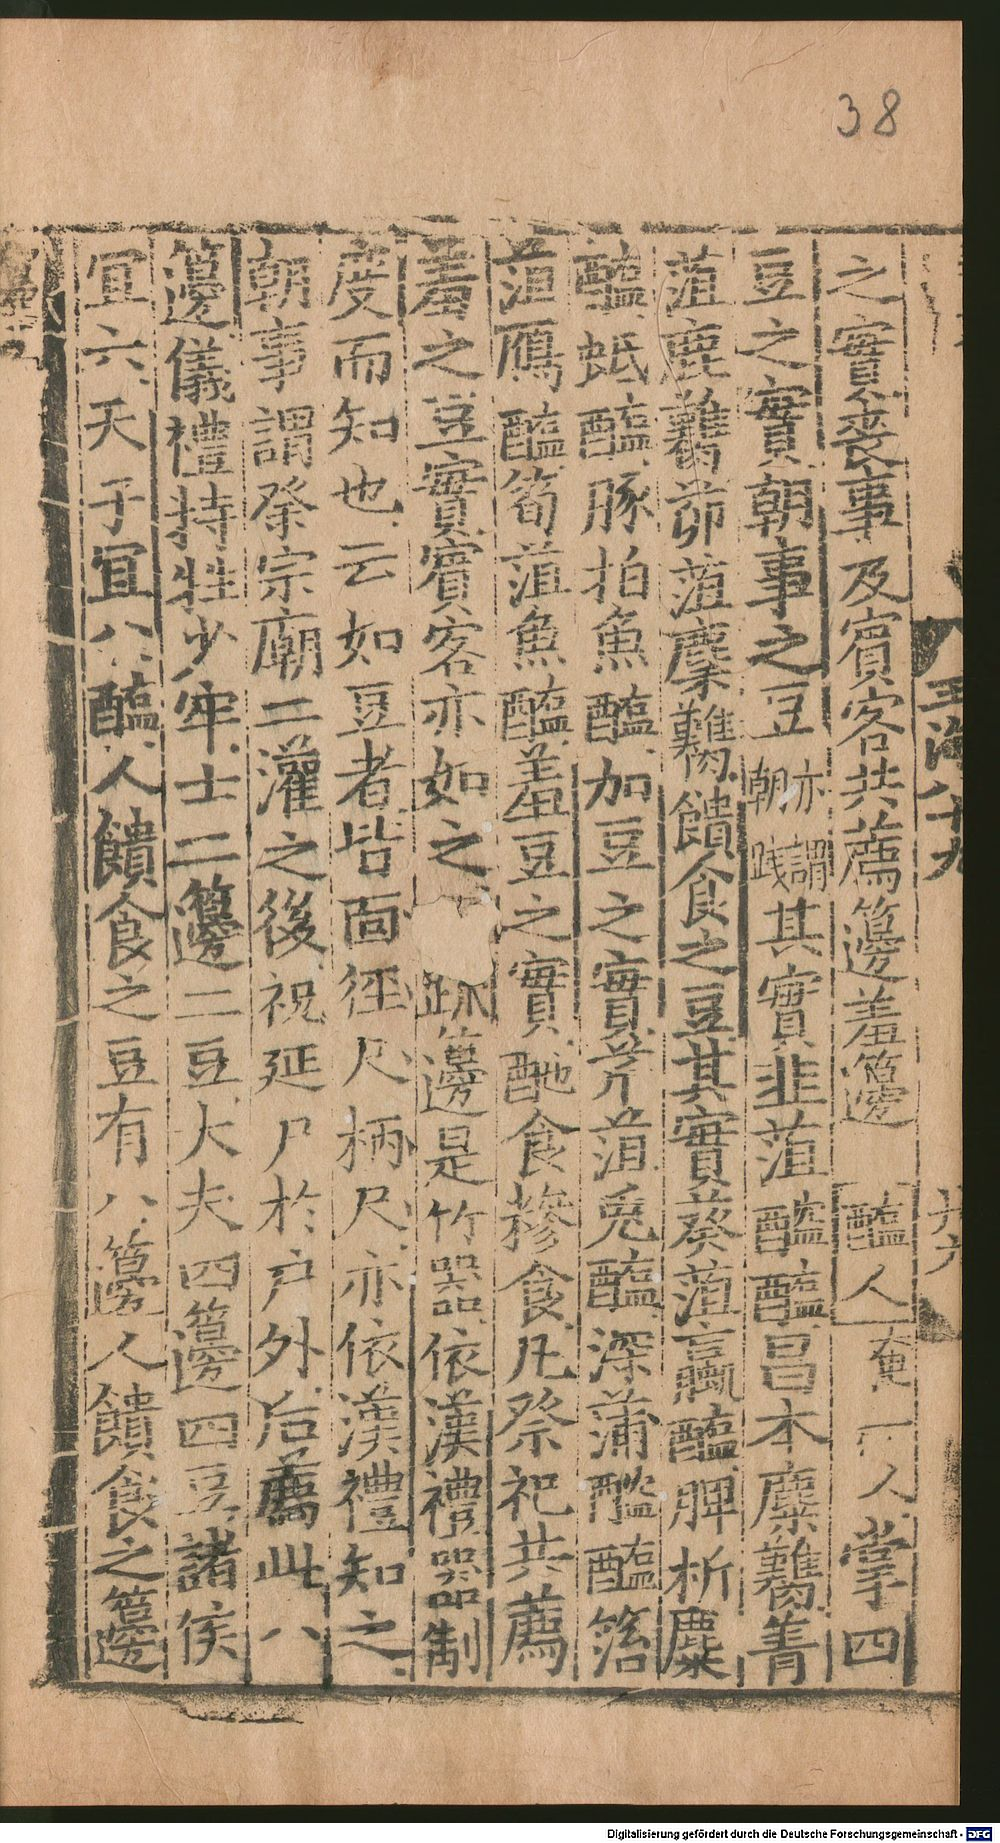 38
之實喪事及賓客共薦籩羞籩 醢人 奄一人掌四
豆之實朝事之豆亦謂朝踐其實韭菹醓醢昌本麋臡菁
菹鹿臡茆菹麋臡饋食之豆其實葵菹蠃醢脾析蠯
醢蚳醢豚拍魚醢加豆之實芹菹兎醢深蒲醓醢箈
菹鴈醢筍菹魚醢羞豆之實酏食糝食凡祭祀共薦
羞之豆實賓客亦如之 疏籩是竹器依漢禮器制
度而知也云如豆者皆面徑尺柄尺亦依漢禮知之
朝事謂祭宗廟二灌之後祝延尸於户外后薦此八
籩儀禮持牲少牢士二籩二豆大夫四籩四豆諸侯
宜六天子宜八醢人饋食之豆有八籩人饋食之籩
玉海八十九
Digitalisierung gefördert durch die Deutsche Forschungsgemeinschaft - DFG